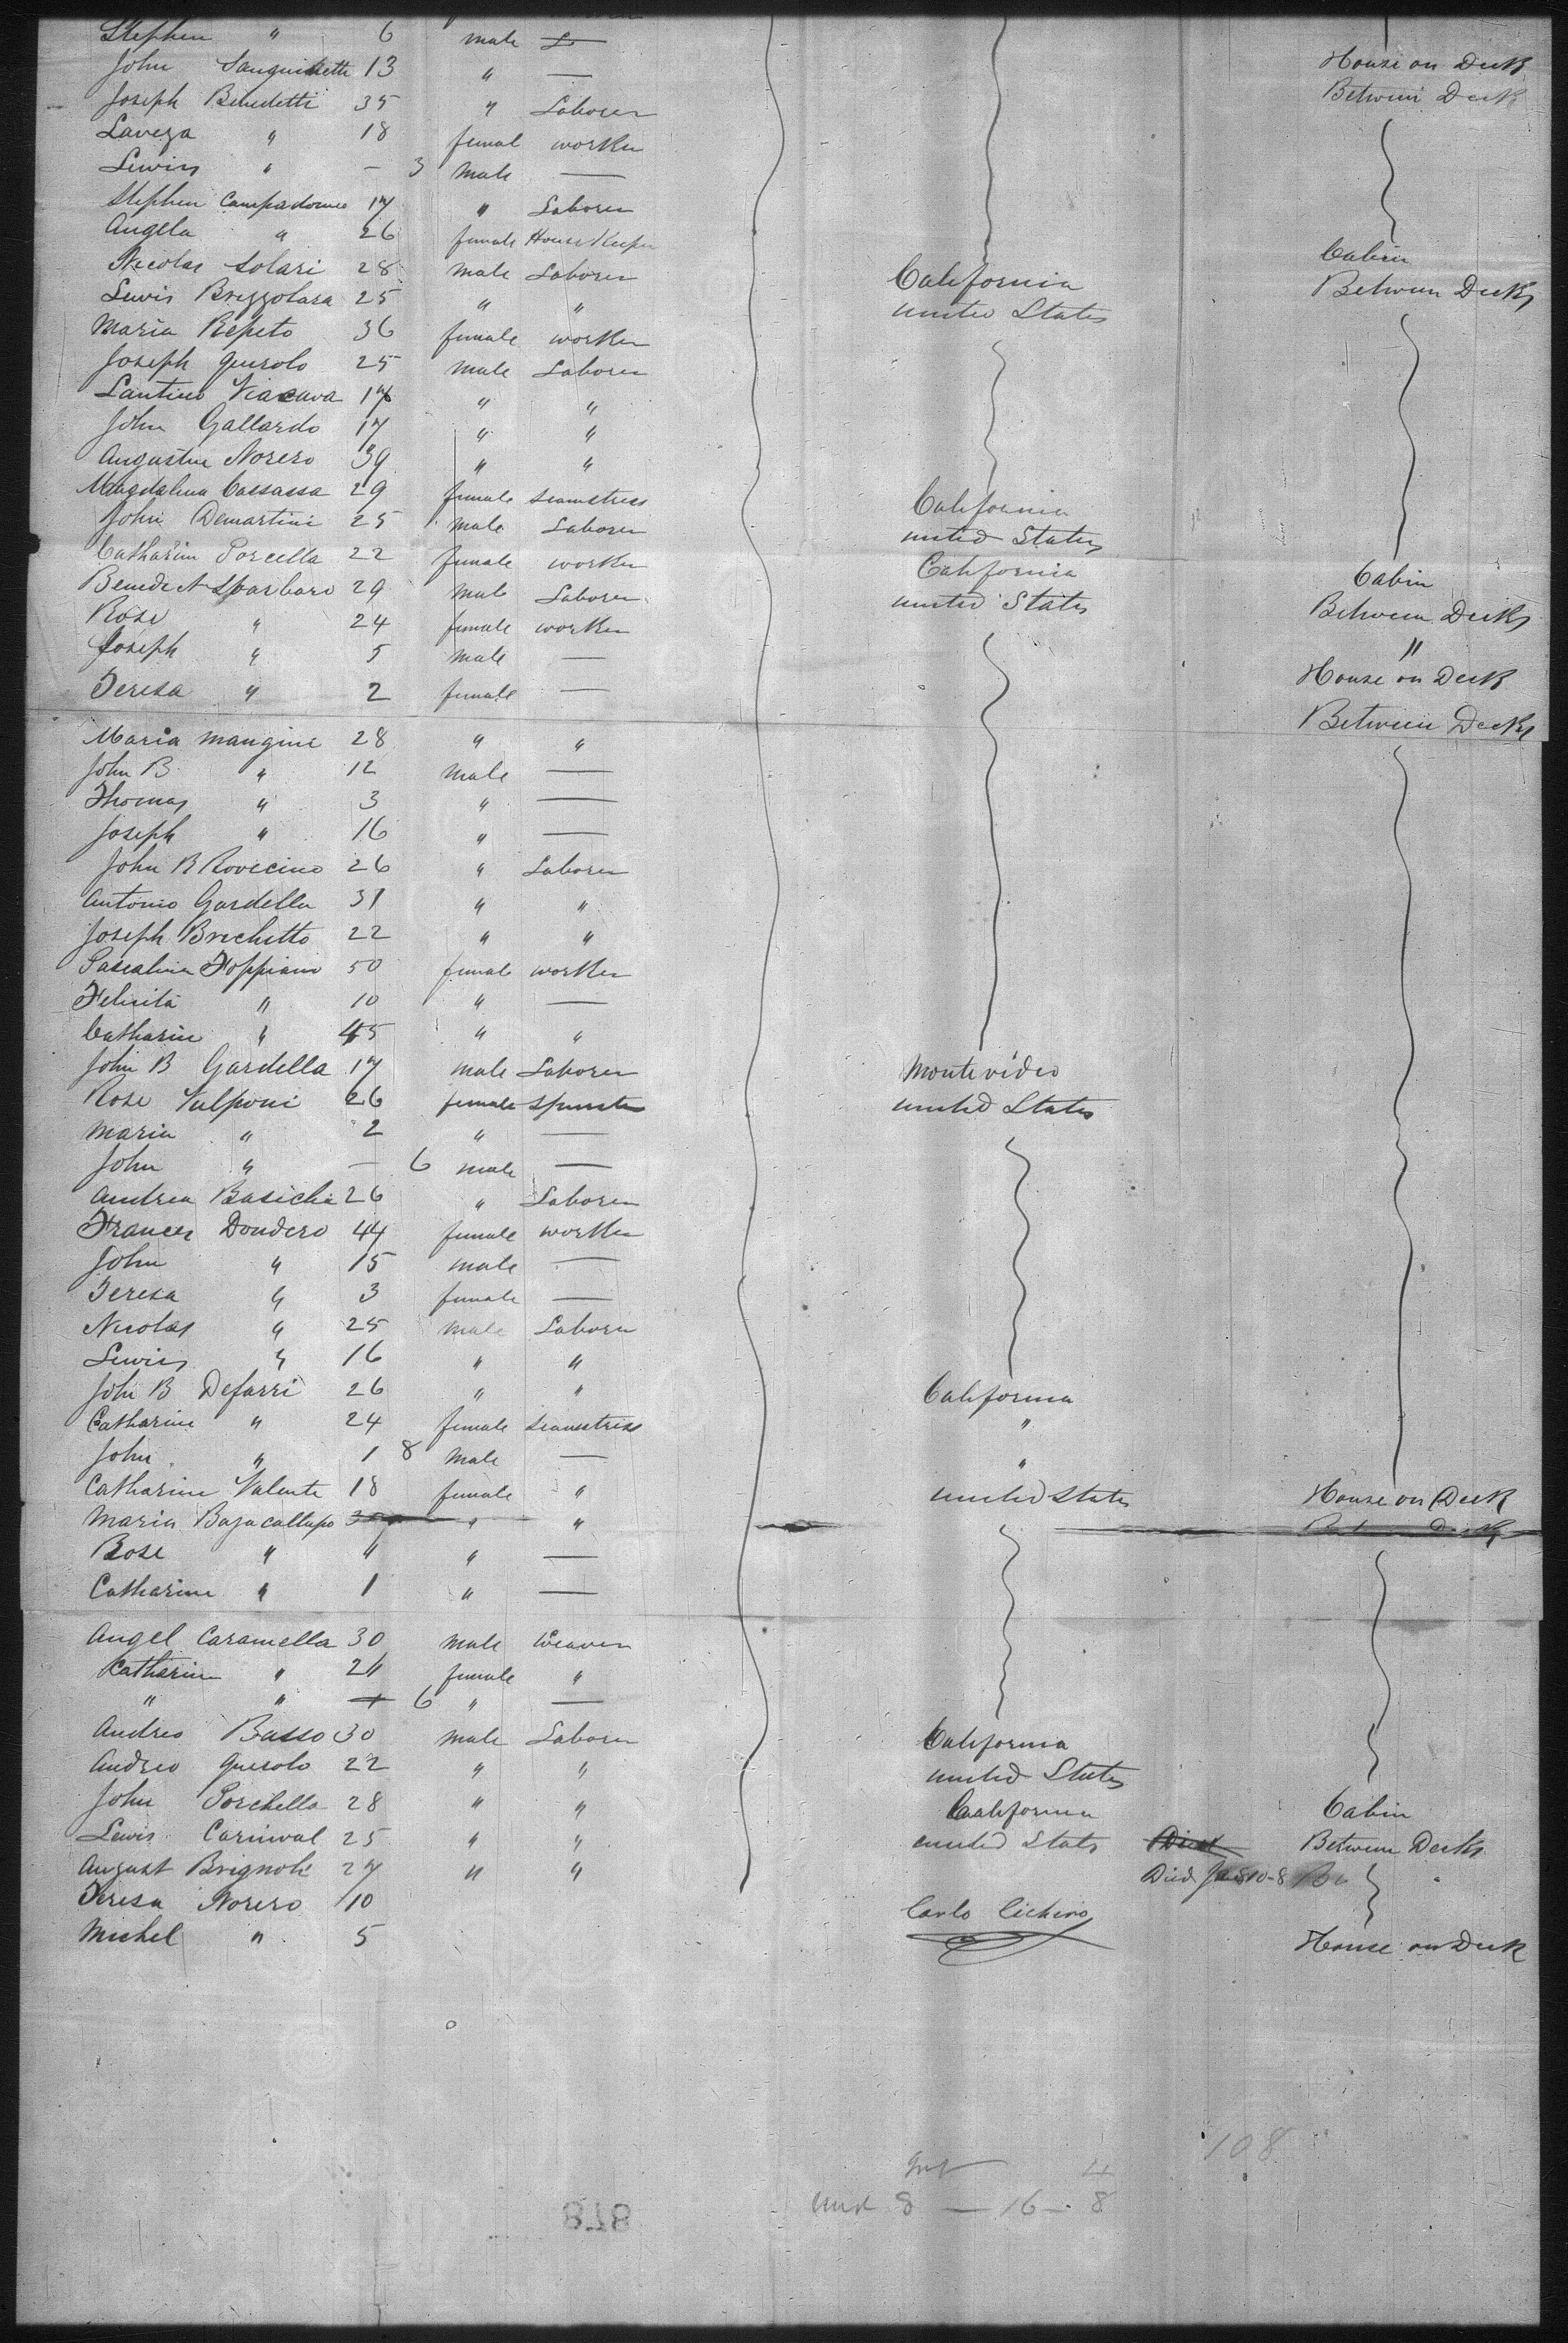 Stephen " 6 male L
John Sanguinetti 13 " — House on Deck
Joseph Benedetti 35 " Laborer Between Deck
Laveza " 18 female worker
Lewis " — 3 Male —
Stephen Campadonico 17 " Laborer
Angela " 26 female House Keeper
Nicolas Solari 28 male Laborer California Cabin
Lewis Brizzolara 25 " " united States Between Decks
Maria Repeto 36 female worker
Joseph Queirolo 25 male Laborer
Santino Viacava 17 " "
John Gallardo 17 " "
Augustine Norero 39 " "
Magdalena Cassassa 29 female seamstress California
John Demartini 25 male Laborer united States
Catharine Porcella 22 female worker California Cabin
Benedict Sbarbaro 29 male Laborer united States Between Decks
Rose " 24 female worker "
Joseph " 5 male — House on Deck
Teresa " 2 female — Between Decks
Maria Mangini 28 " "
John B " 12 male —
Thomas " 3 " —
Joseph " 16 " —
John B Rovecino 26 " Laborer
Antonio Gardella 31 " "
Joseph Brichetto 22 " "
Pascalina Foppiano 50 female worker
Felicita " 10 " —
Catharine " 45 " "
John B Gardella 17 male Laborer Montevideo
Rose Vulponi 26 female Spinster united States
Maria " 2 " —
John " — 6 male —
Andrea Basicha 26 " Laborer
Frances Dondero 44 female worker
John " 15 male —
Teresa " 3 female —
Nicolas " 25 male Laborer
Lewis " 16 " "
John B Defarri 26 " " California
Catharine " 24 female seamstress "
John " 1 8 male — "
Catharine Valente 18 female " united States House on Deck
Maria " "
Rose " 4 " —
Catharine " 1 " —
Angel Caramella 30 male Weaver
Catharine " 24 female "
" " + 6 " —
Andreo Basso 30 male Laborer California
Andreo Queirolo 22 " " united States
John Porchella 28 " " California Cabin
Lewis Carnival 25 " " united States Died Between Decks
August Brignole 27 " " Died
Teresa Norero 10 Carlo Cichero
Michel " 5 House on Deck
108
4
8 — 16 — 8
878